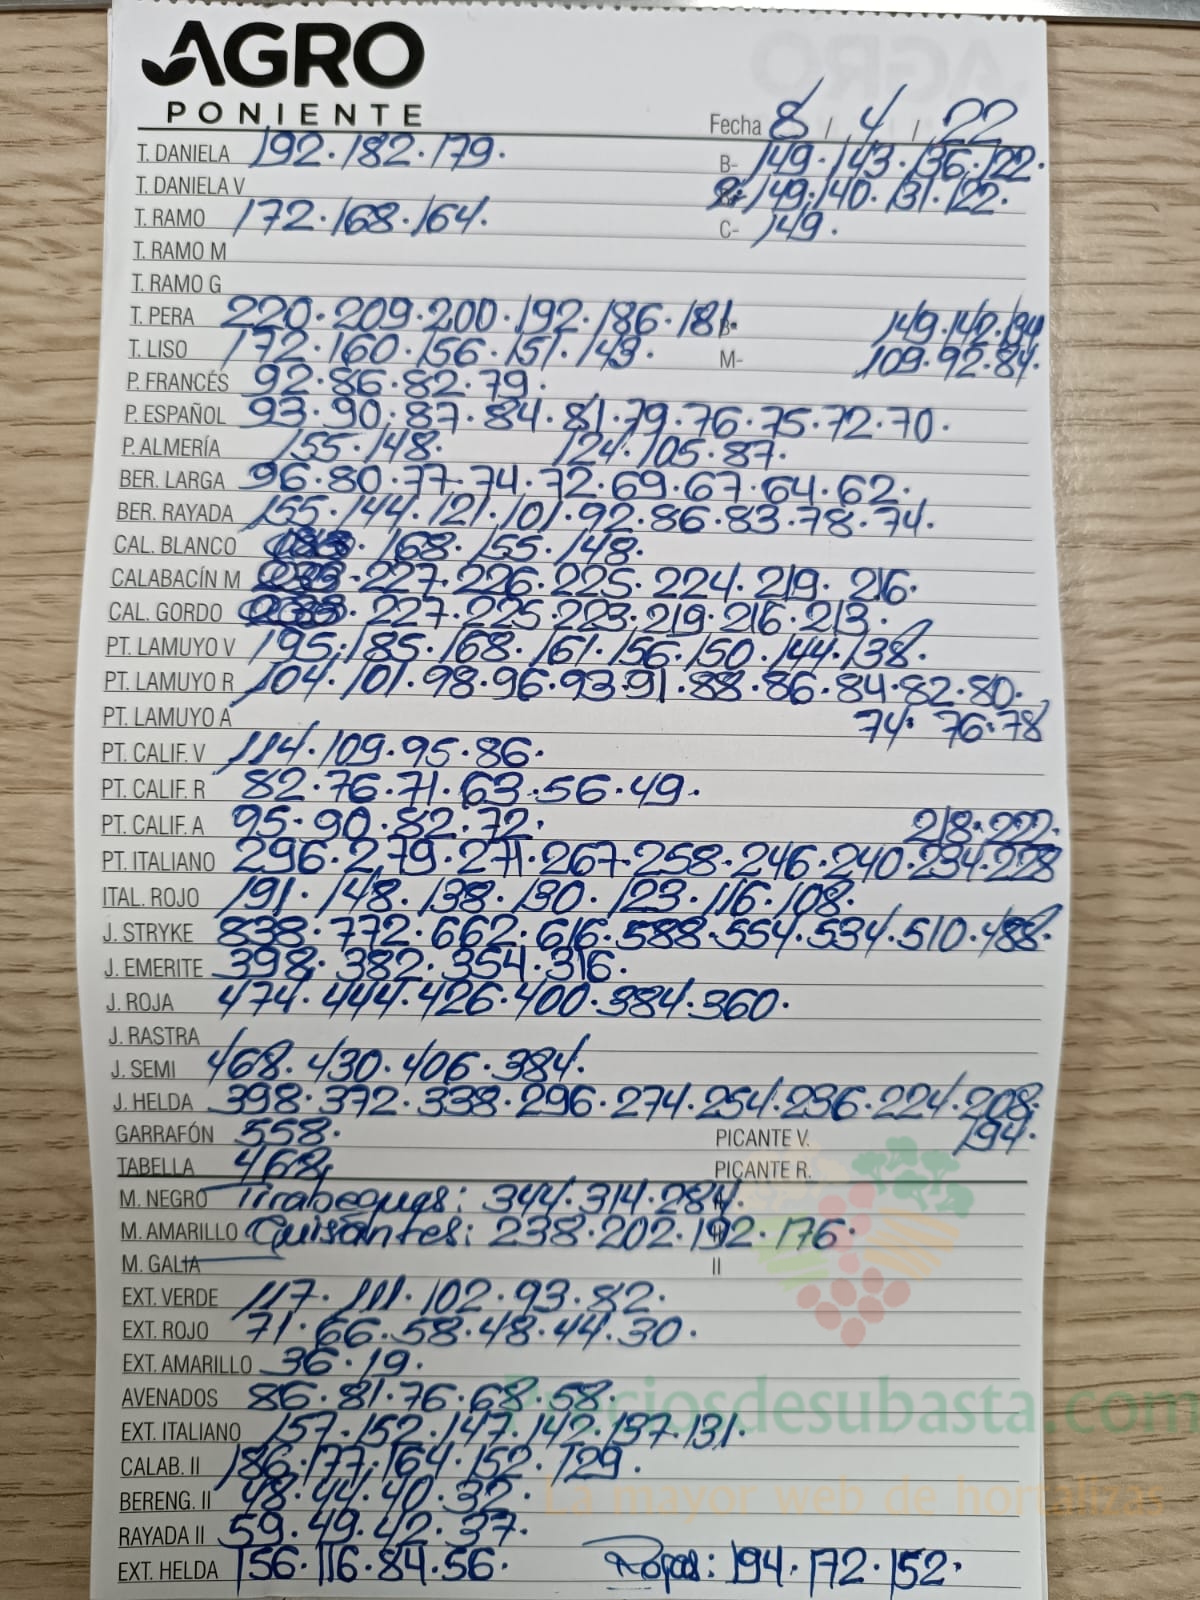 AGRO
PONIENTE
Fecha 8 / 4 / 22
T. DANIELA 192. 182. 179. B- 149. 143. 136. 122.
T. DANIELA V 149. 140. 131. 122.
T. RAMO 172. 168. 164. C- 149.
T. RAMO M
T. RAMO G
T. PERA 220. 209. 200. 192. 186. 181. B- 149. 142. 194
T. LISO 172. 160. 156. 151. 143. M- 109. 92. 84.
P. FRANCÉS 92. 86. 82. 79.
P. ESPAÑOL 93. 90. 87. 84. 81. 79. 76. 75. 72. 70.
P. ALMERÍA 155. 148. 124. 105. 87.
BER. LARGA 96. 80. 77. 74. 72. 69. 67. 64. 62.
BER. RAYADA 155. 144. 121. 101. 92. 86. 83. 78. 74.
CAL. BLANCO 168. 155. 148.
CALABACÍN M 227. 226. 225. 224. 219. 216.
CAL. GORDO 227. 225. 223. 219. 216. 213.
PT. LAMUYO V 195. 185. 168. 161. 156. 150. 144. 138.
PT. LAMUYO R 104. 101. 98. 96. 93. 91. 88. 86. 84. 82. 80.
PT. LAMUYO A 74. 76. 78
PT. CALIF. V 114. 109. 95. 86.
PT. CALIF. R 82. 76. 71. 63. 56. 49.
PT. CALIF. A 95. 90. 82. 72. 218. 222.
PT. ITALIANO 296. 279. 271. 267. 258. 246. 240. 234. 228
ITAL. ROJO 191. 148. 138. 130. 123. 116. 108.
J. STRYKE 838. 772. 662. 616. 588. 554. 534. 510. 488.
J. EMERITE 398. 382. 354. 316.
J. ROJA 474. 444. 426. 400. 384. 360.
J. RASTRA
J. SEMI 468. 430. 406. 384.
J. HELDA 398. 372. 338. 296. 274. 254. 236. 224. 208.
GARRAFÓN 558. PICANTE V. 194.
TABELLA 468. PICANTE R.
M. NEGRO Tirabeques: 344. 314. 284.
M. AMARILLO Guisantes: 238. 202. 192. 176.
M. GALIA II
EXT. VERDE 117. 111. 102. 93. 82.
EXT. ROJO 71. 66. 58. 48. 44. 30.
EXT. AMARILLO 36. 19.
AVENADOS 86. 81. 76. 68. 58.
Preciosdesubasta.com
EXT. ITALIANO 157. 152. 147. 142. 137. 131.
CALAB. II 186. 177. 164. 152. 129.
BERENG. II 48. 44. 40. 32.
La mayor web de hortalizas
RAYADA II 59. 49. 42. 37.
EXT. HELDA 156. 116. 84. 56. Rojas: 194. 172. 152.